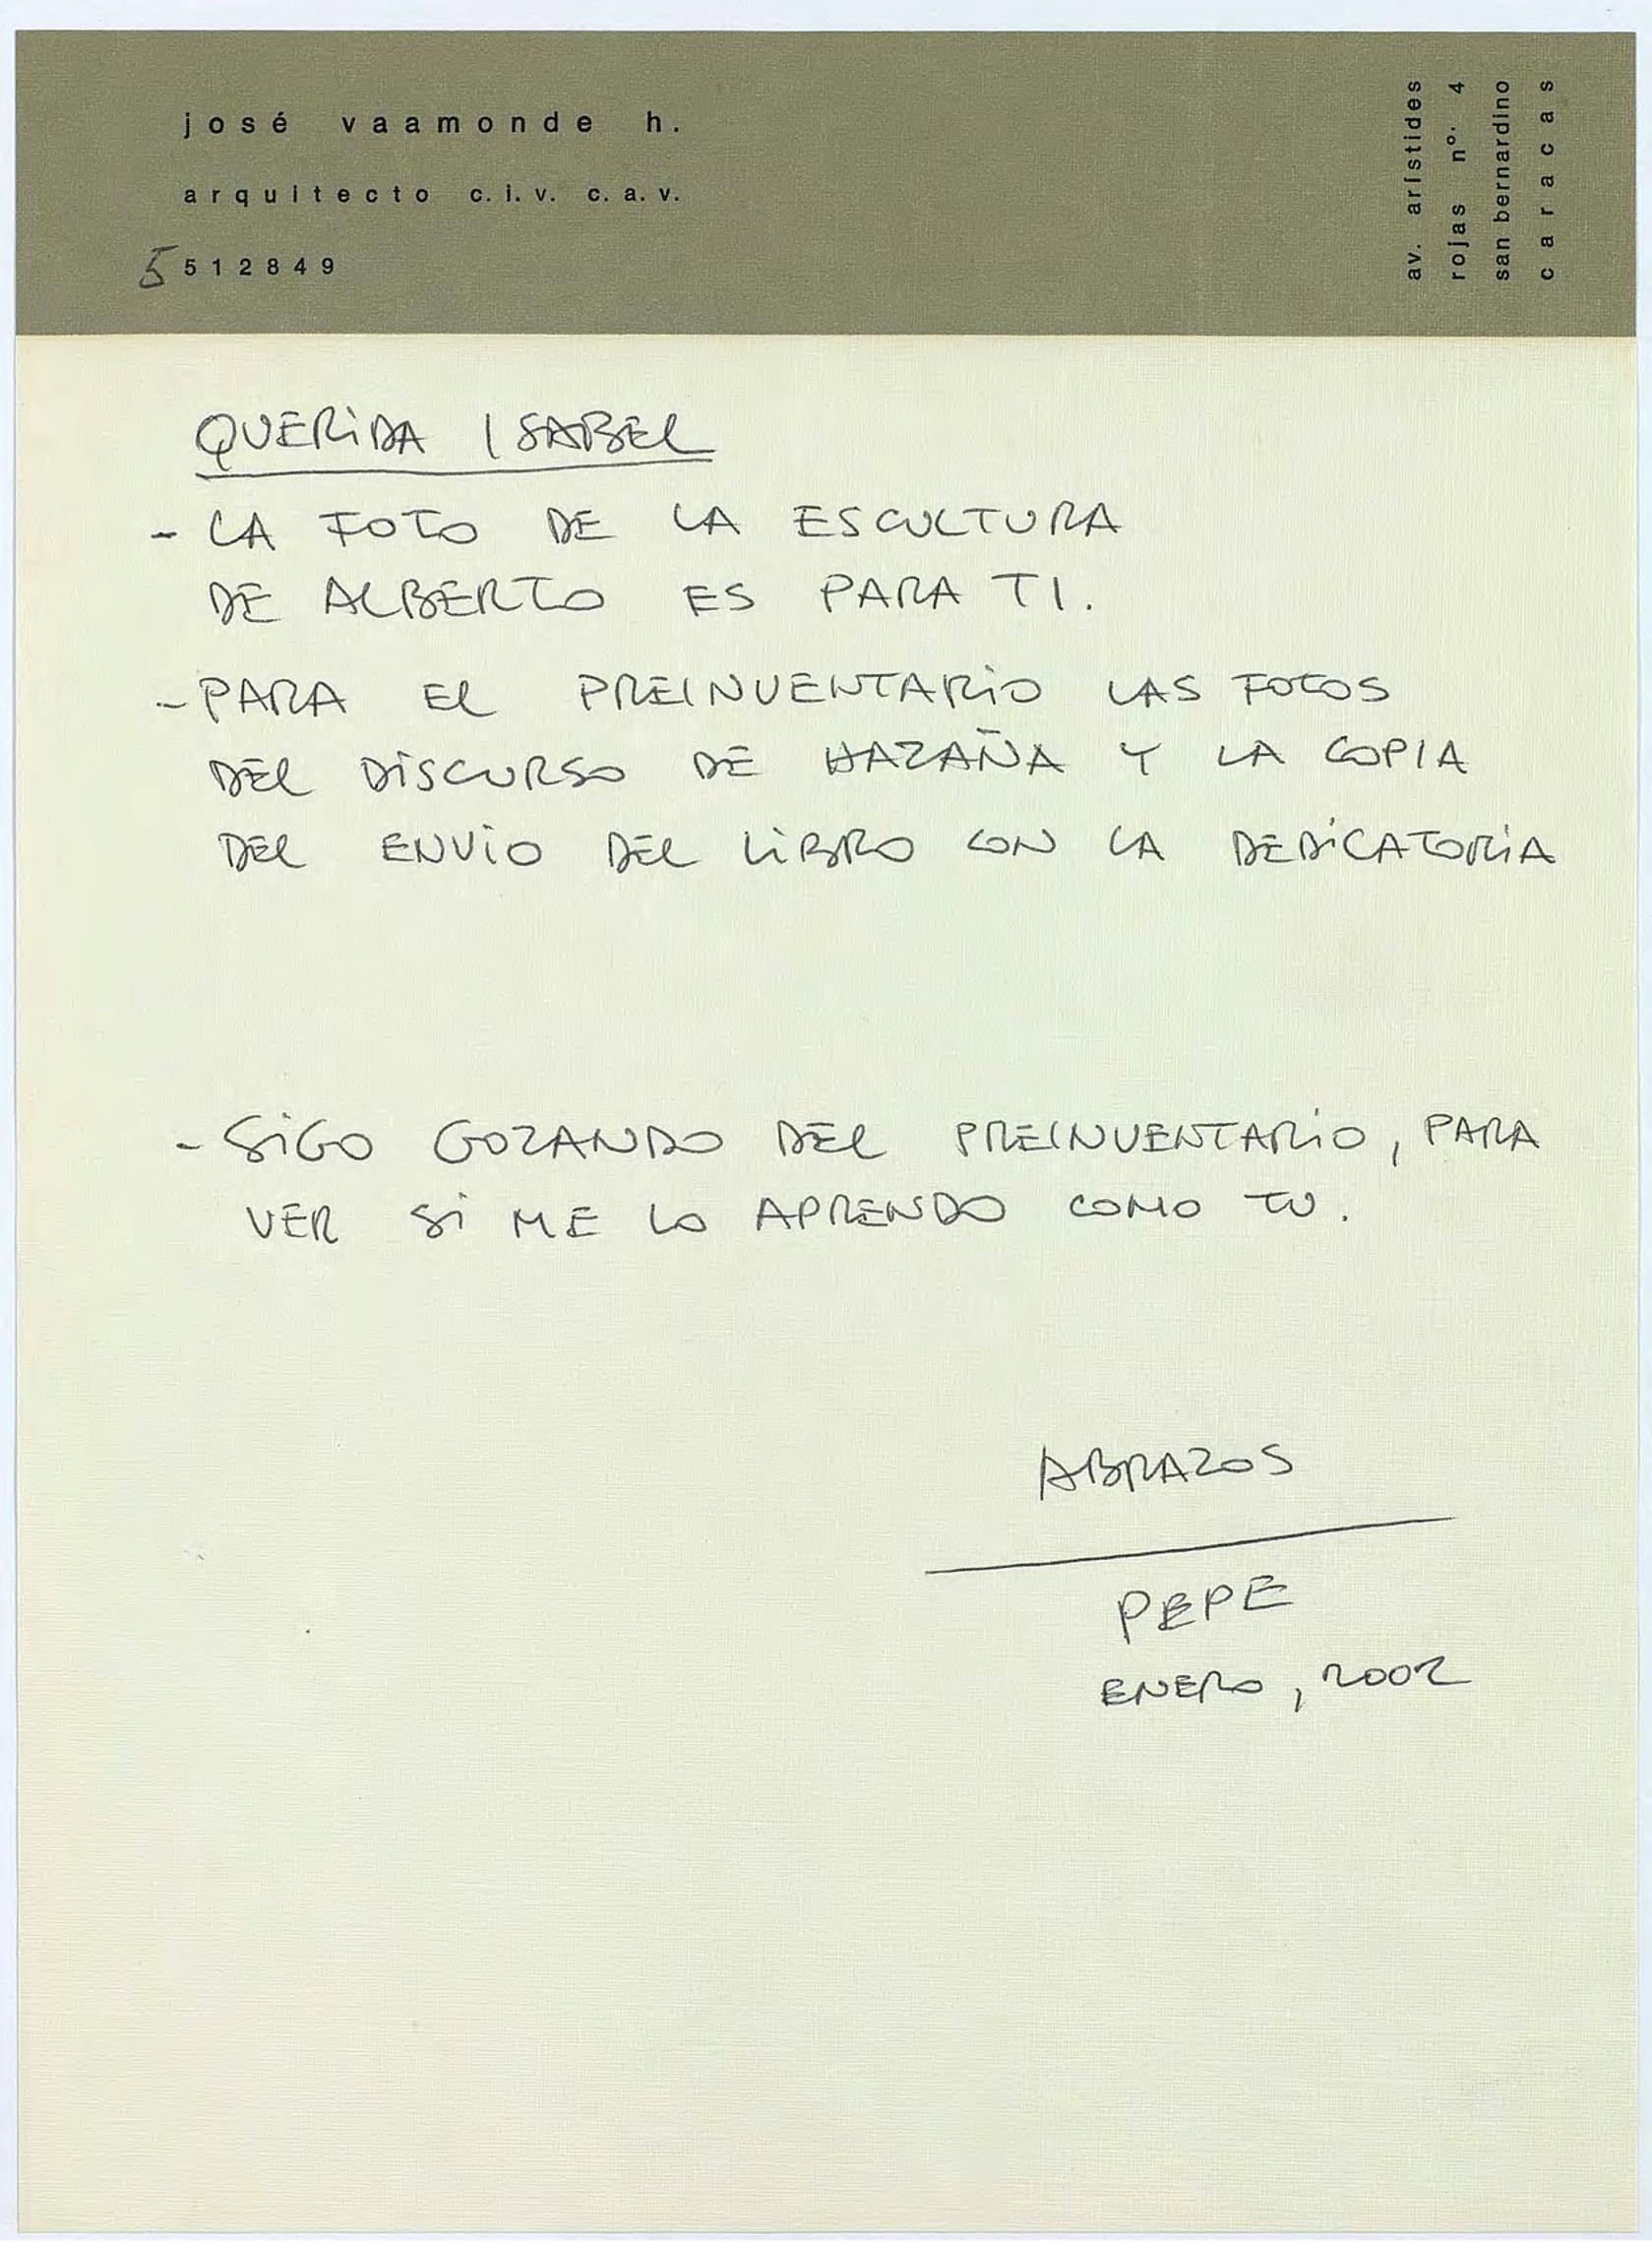 josé vaamonde h.
arquitecto c.i.v. c.a.v.
5 512849
av. arístides
rojas nº. 4
san bernardino
caracas
QUERiDA ISABEL
- LA FOTO DE LA ESCULTURA
DE ALBERTO ES PARA TI.
- PARA El PREINVENTARiO LAS FOTOS
DEl DiSCURSO DE HAZAÑA Y LA COPIA
DEl ENViO DEl LiBRO CON LA DEDiCATORiA
- SiGO GOZANDO DEl PREINVENTARiO, PARA
VER Si ME LO APRENDO COMO TU.
ABRAZOS
PEPE
ENERO, 2002